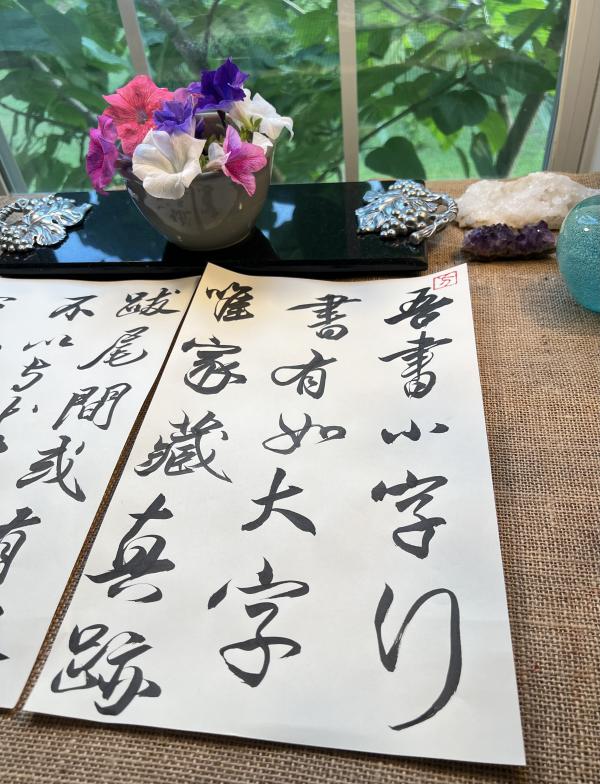 吾書小字行
書有如大字
唯家藏真跡
跋尾間或有
不以与